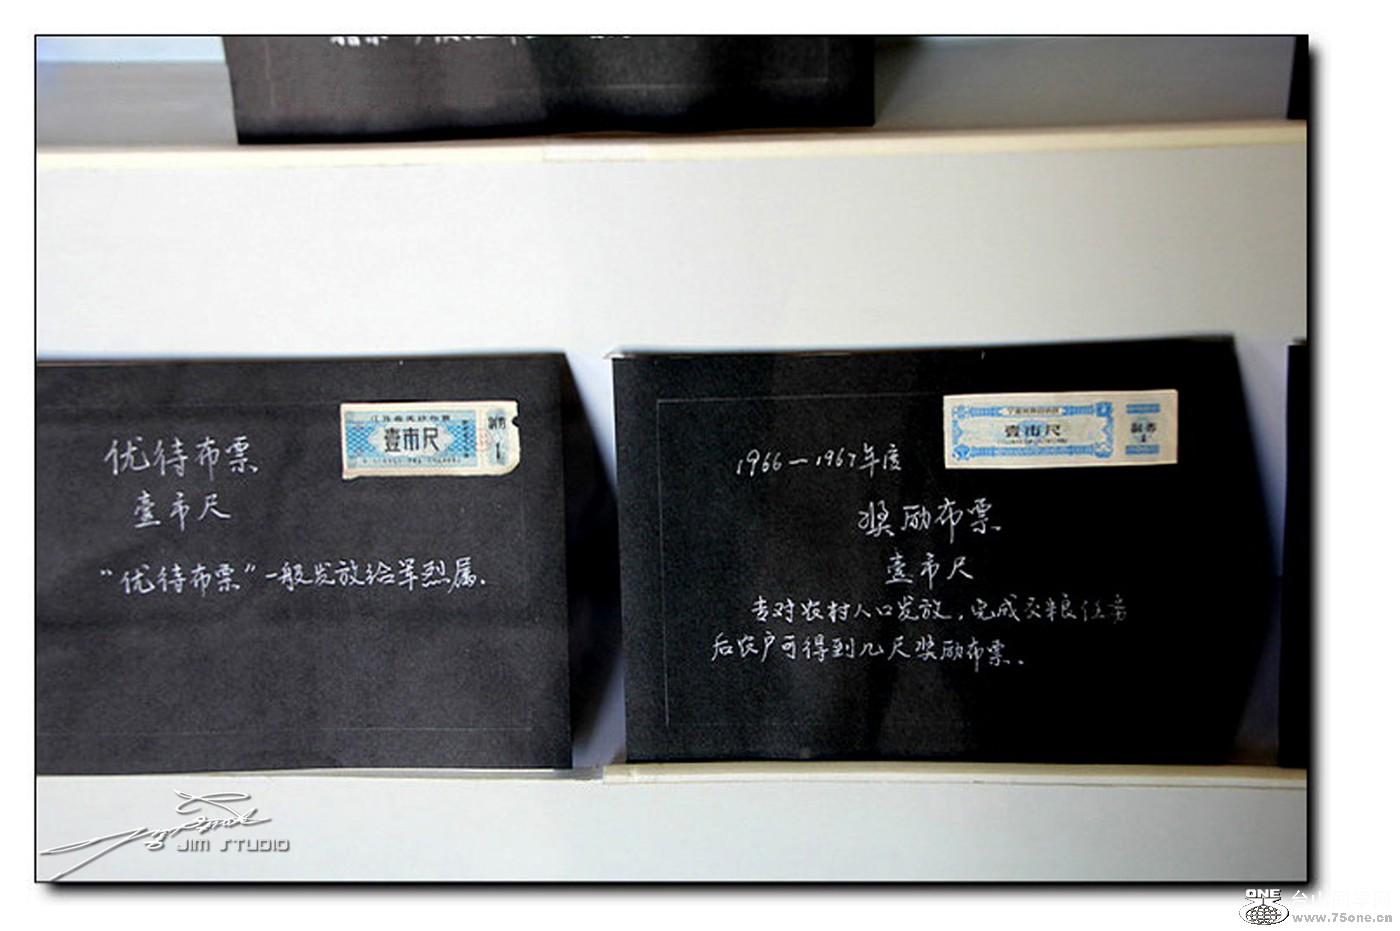 优待布票
壹市尺
“优待布票”一般发放给军烈属.
壹市尺
副券
1
1966—1967年度
奖励布票
壹市尺
专对农村人口发放,完成交粮任务
后农户可得到几尺奖励布票.
壹市尺
副券
JIM STUDIO
ONE
台山同学网
www.75one.cn